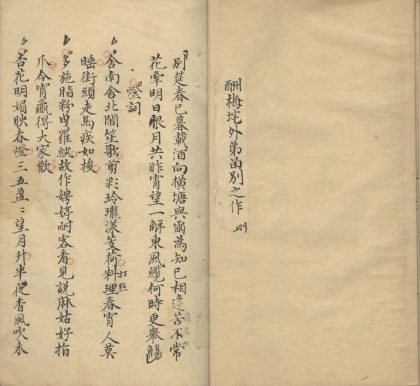 酬梅垞外弟留別之作 刪
別楚春已暮載酒向橫塘與爾為知己相逢苦不常
花牽明日眼月共昨宵望一解東風纜何時更舉觴
燈詞
舍南舍北鬧笙歌剪彩玲瓏漾芰荷料理春宵人莫
睡街頭走馬疾如梭
多施脂粉曳羅紈故作娉婷耐客看見說麻姑好指
爪今宵贏得大家歡
杏花明媚映春燈三五盈盈望月升半夜香風吹未